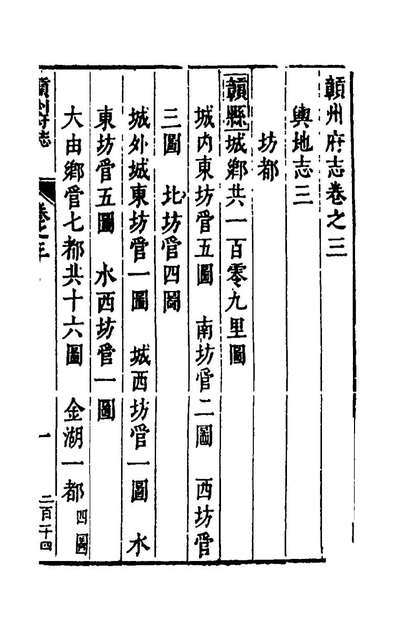 贛州府志卷之三
輿地志三
坊都
贛縣城鄉共一百零九里圖
城内東坊管五圖　南坊管二圖　西坊管
三圖　北坊管四圖
城外城東坊管一圖　城西坊管一圖　水
東坊管五圖　水西坊管一圖
大由鄉管七都共十六圖　金湖一都四圖
贛州府志　卷之三　一　二百二十四